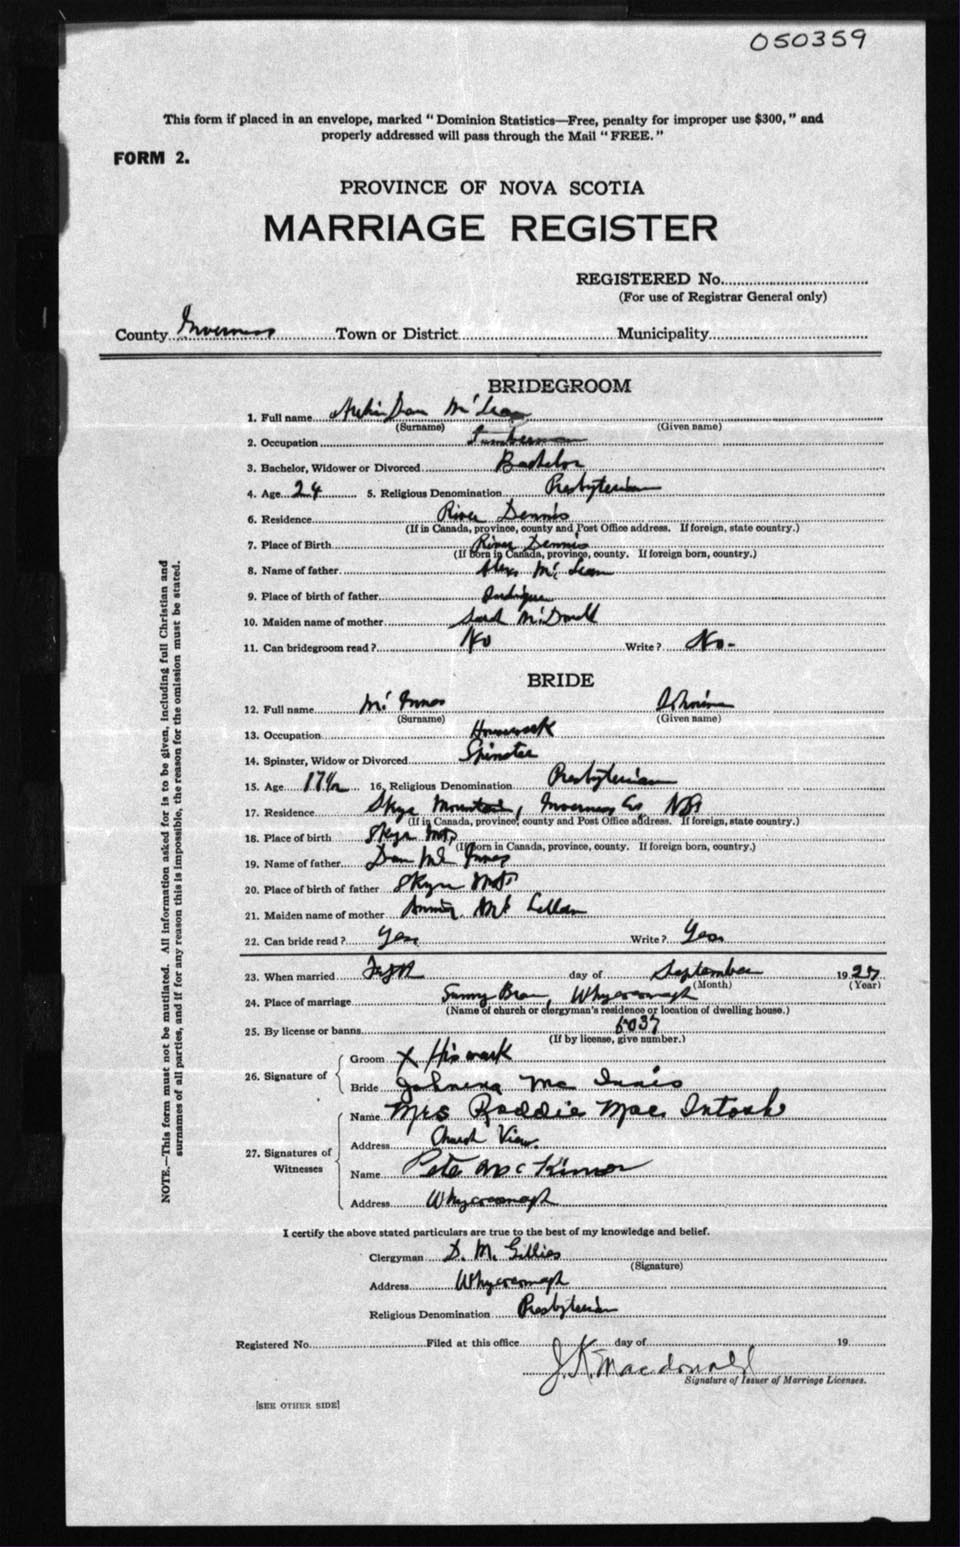 050359
This form if placed in an envelope, marked "Dominion Statistics—Free, penalty for improper use $300," and
properly addressed will pass through the Mail "FREE."
FORM 2.
PROVINCE OF NOVA SCOTIA
MARRIAGE REGISTER
REGISTERED No.
(For use of Registrar General only)
County Inverness Town or District Municipality
BRIDEGROOM
1. Full name Dan Mc Lean
(Surname) (Given name)
2. Occupation Lumberman
3. Bachelor, Widower or Divorced Bachelor
4. Age 24 5. Religious Denomination Presbyterian
6. Residence River Dennis
(If in Canada, province, county and Post Office address. If foreign, state country.)
7. Place of Birth River Dennis
(If born in Canada, province, county. If foreign born, country.)
8. Name of father Alex Mc Lean
9. Place of birth of father
10. Maiden name of mother Sarah McDonald
11. Can bridegroom read? No Write? No-
BRIDE
12. Full name Mc Innes
(Surname) (Given name)
13. Occupation Housework
14. Spinster, Widow or Divorced Spinster
15. Age 17½ 16. Religious Denomination Presbyterian
17. Residence Skye Mountain, Inverness Co NS
(If in Canada, province, county and Post Office address. If foreign, state country.)
18. Place of birth Skye Mt
(If born in Canada, province, county. If foreign born, country.)
19. Name of father Dan Mc Innes
20. Place of birth of father Skye Mt
21. Maiden name of mother Annie Mc Lellan
22. Can bride read? Yes Write? Yes
23. When married day of September 1927
(Month) (Year)
24. Place of marriage Sunny Brae, Whycocomagh
(Name of church or clergyman's residence or location of dwelling house.)
25. By license or banns 6037
(If by license, give number.)
26. Signature of
Groom X His mark
Bride Johnena Mc Innis
27. Signatures of Witnesses
Name Mrs Roddie Mac Intosh
Address Church View
Name Pete McKinnon
Address Whycocomagh
NOTE.—This form must not be mutilated. All information asked for is to be given, including full Christian and
surnames of all parties, and if for any reason this is impossible, the reason for the omission must be stated.
I certify the above stated particulars are true to the best of my knowledge and belief.
Clergyman D. M. Gillies
(Signature)
Address Whycocomagh
Religious Denomination Presbyterian
Registered No. Filed at this office day of 19
J. K. Macdonald
Signature of Issuer of Marriage Licenses.
[SEE OTHER SIDE]